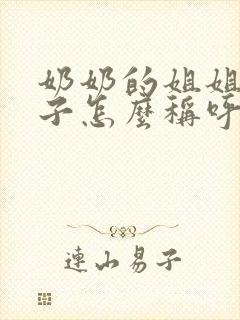 奶奶的姐姐
子怎麼稱呼
連山易子